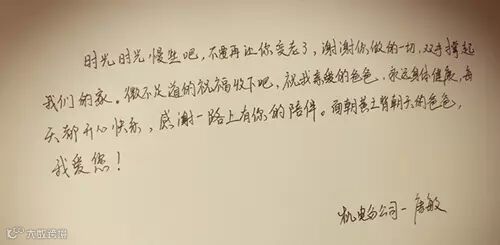 时光时光慢些吧，不要再让你变老了，谢谢你做的一切，双手撑起
我们的家。微不足道的祝福收下吧，祝我亲爱的爸爸，永远身体健康，每
天都开心快乐，感谢一路上有你的陪伴。面朝黄土背朝天的爸爸，
我爱您！
机电分公司-唐敏
大数跨境